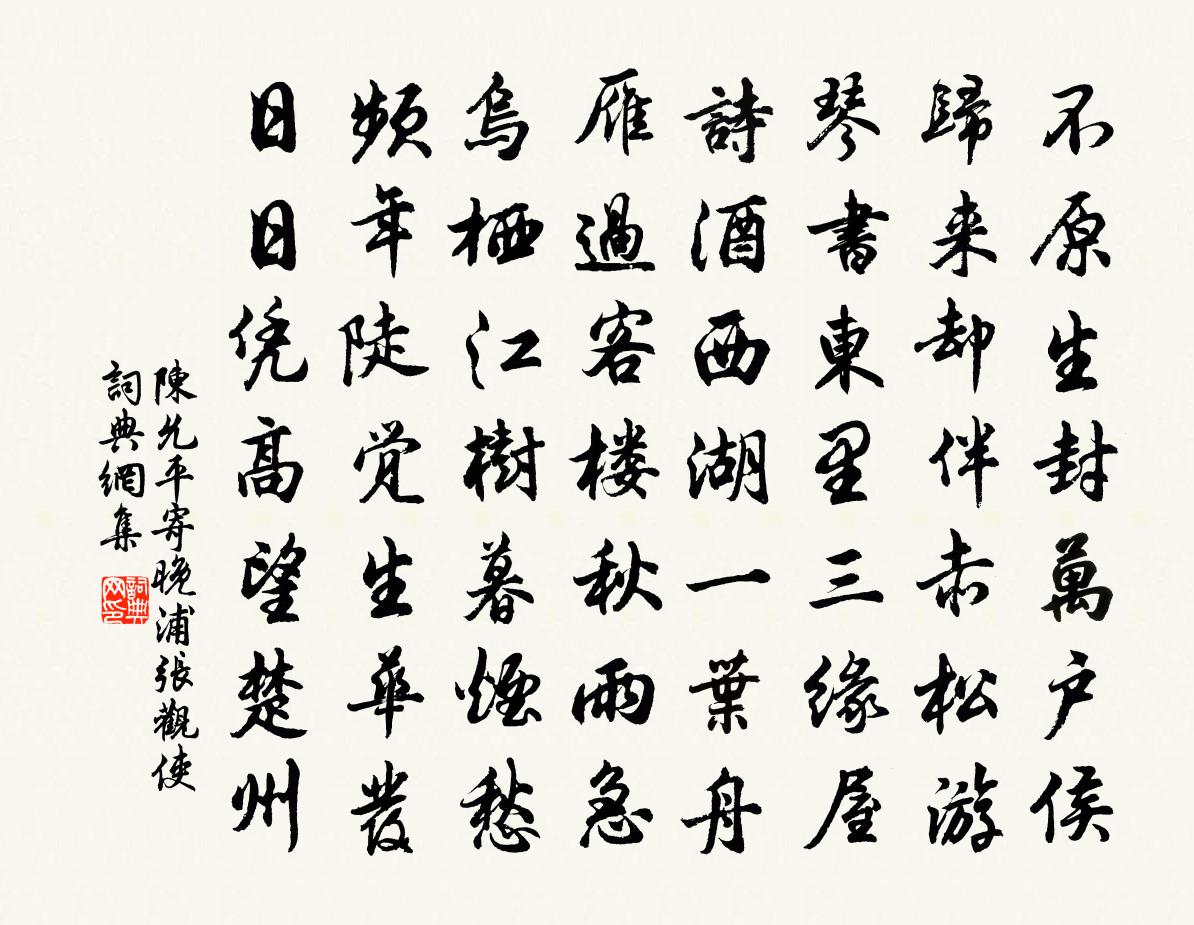 不原生封萬户侯
歸来却伴赤松游
琴書東里三緣屋
詩酒西湖一葉舟
雁過客楼秋雨急
烏栖江樹暮煙愁
頻年陡觉生華发
日日凭高望楚州
陳允平寄晚浦張觀使
詞典網集
詞典网印